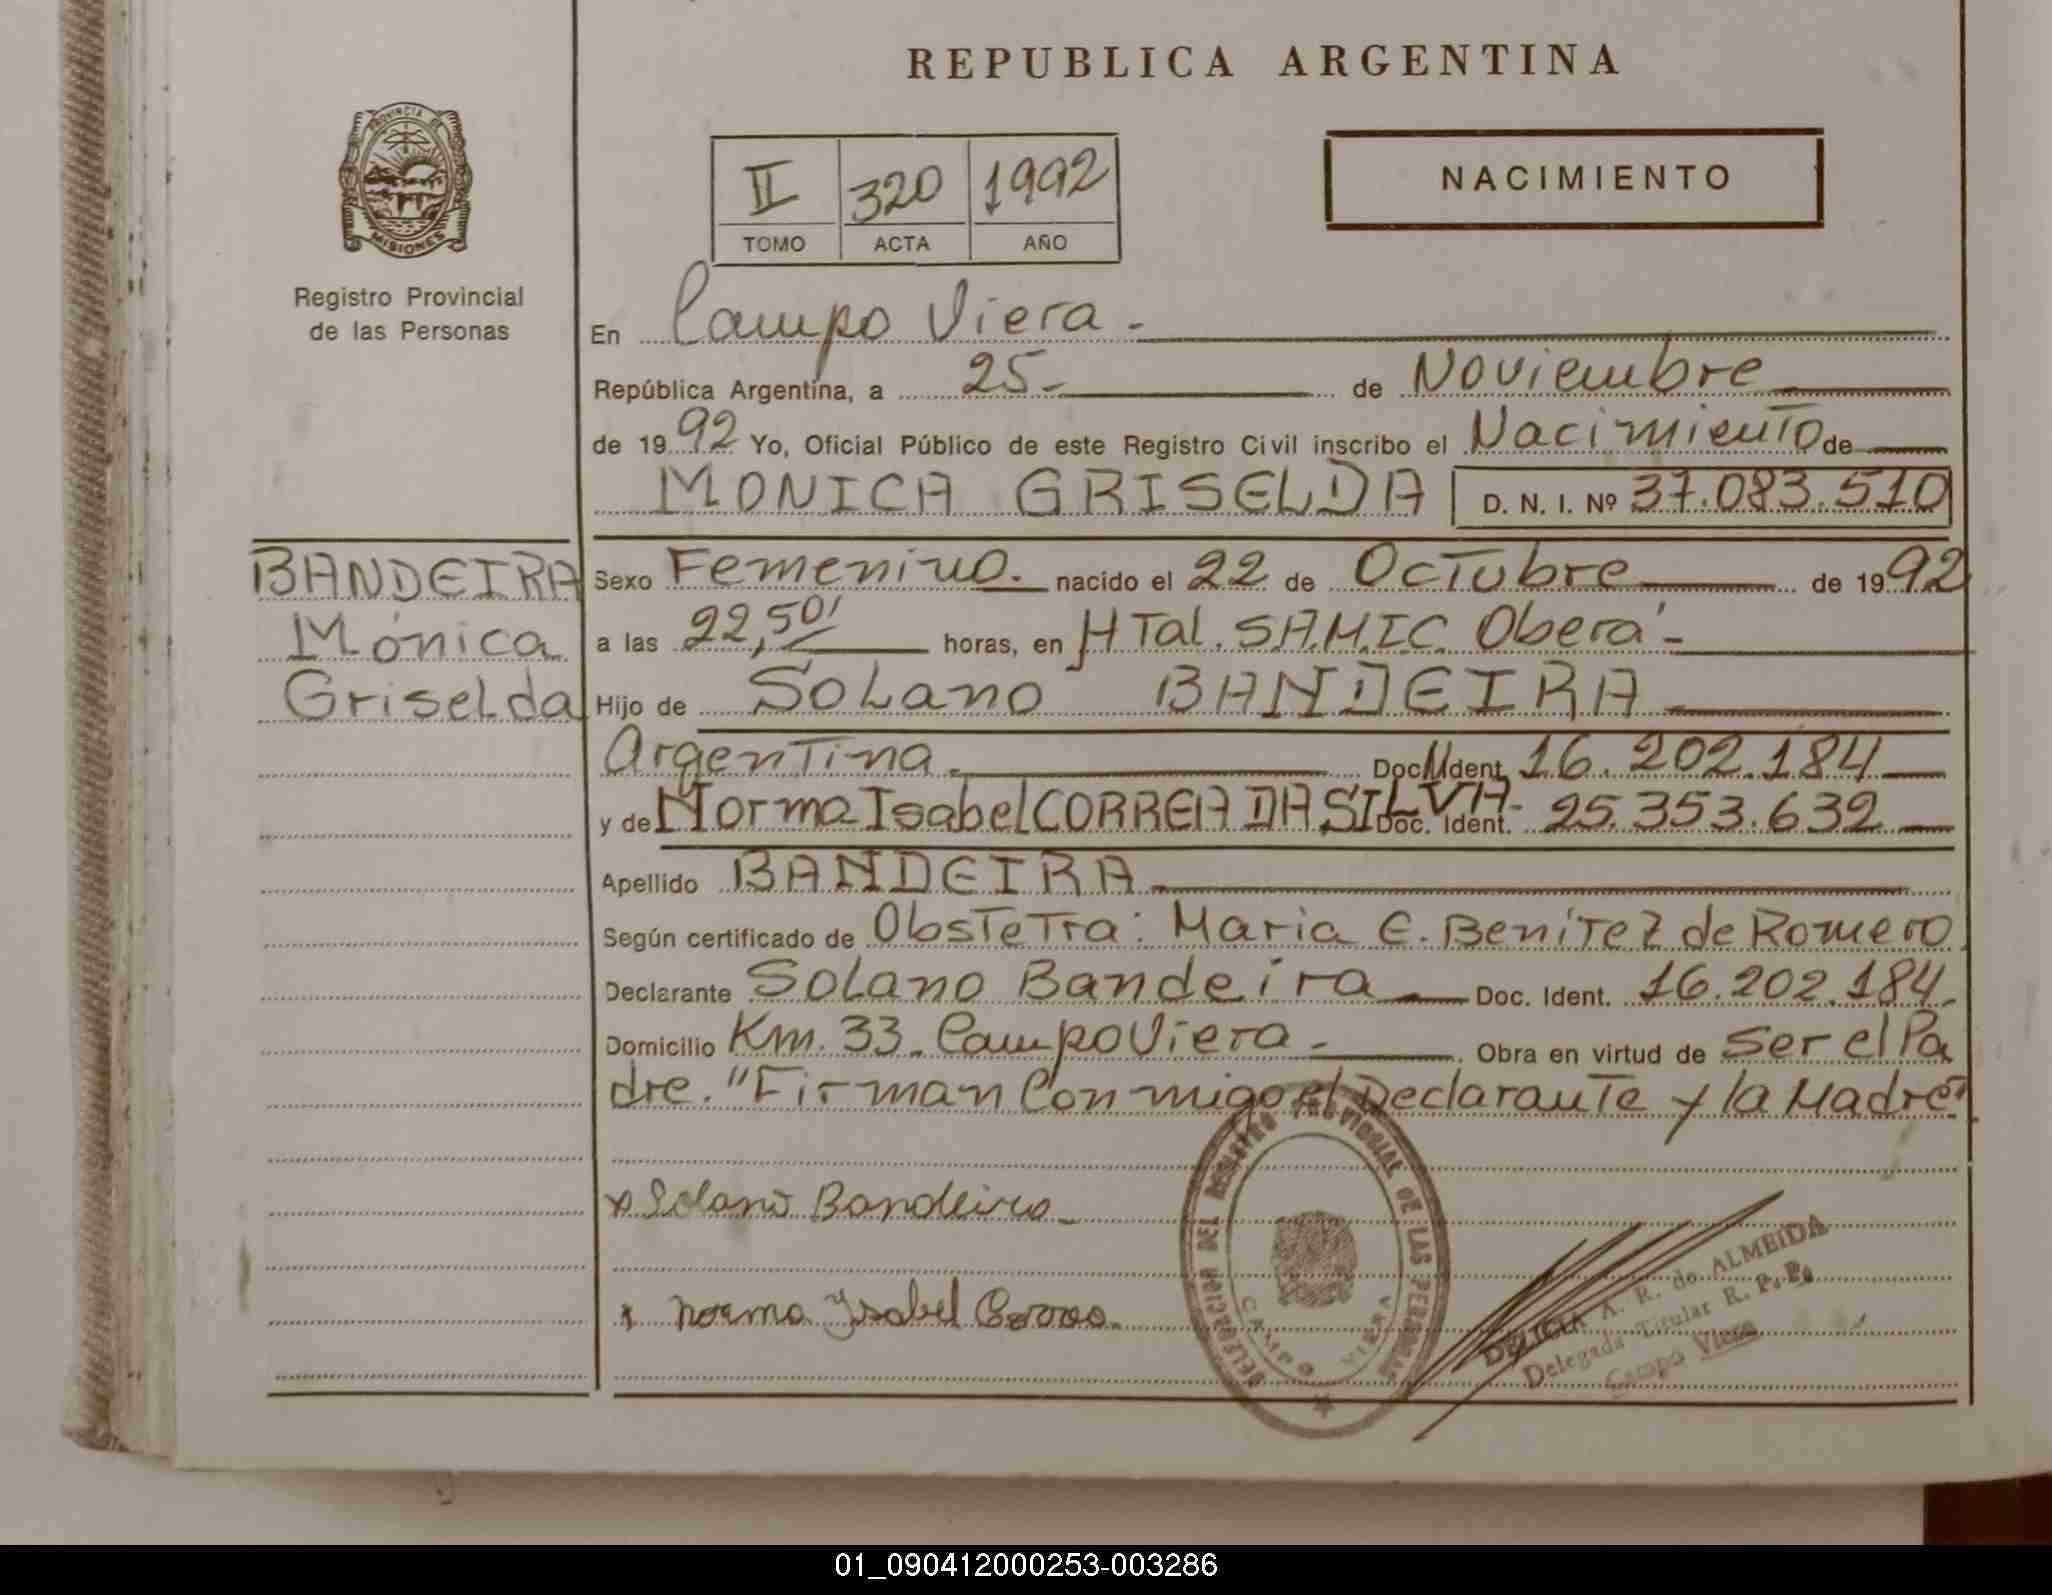 REPUBLICA ARGENTINA
PROVINCIA DE
MISIONES
Registro Provincial
de las Personas
II 320 1992
TOMO ACTA AÑO
NACIMIENTO
En Campo Viera.-
República Argentina, a 25.- de Noviembre
de 1992 Yo, Oficial Público de este Registro Civil inscribo el Nacimiento de
MONICA GRISELDA D. N. I. Nº 37.083.510
BANDEIRA
Mónica
Griselda
Sexo Femenino. nacido el 22 de Octubre de 1992
a las 22,50' horas, en HTal. S.A.M.I.C. Oberá.-
Hijo de Solano BANDEIRA
Argentina. Doc. Ident. 16.202.184
y de Norma Isabel CORREA DA SILVA- Doc. Ident. 25.353.632
Apellido BANDEIRA
Según certificado de Obstetra: Maria E. Benítez de Romero
Declarante Solano Bandeira Doc. Ident. 16.202.184.
Domicilio Km. 33. Campo Viera.- Obra en virtud de ser el Pa
dre. "Firman Conmigo el Declarante y la Madre"
x Solano Bandeira
x Norma Ysabel Correa.
DELEGACION DEL REGISTRO PROVINCIAL DE LAS PERSONAS
CAMPO VIERA
DELICIA A. R. de ALMEIDA
Delegada Titular R. P. P.
Campo Viera
01_090412000253-003286